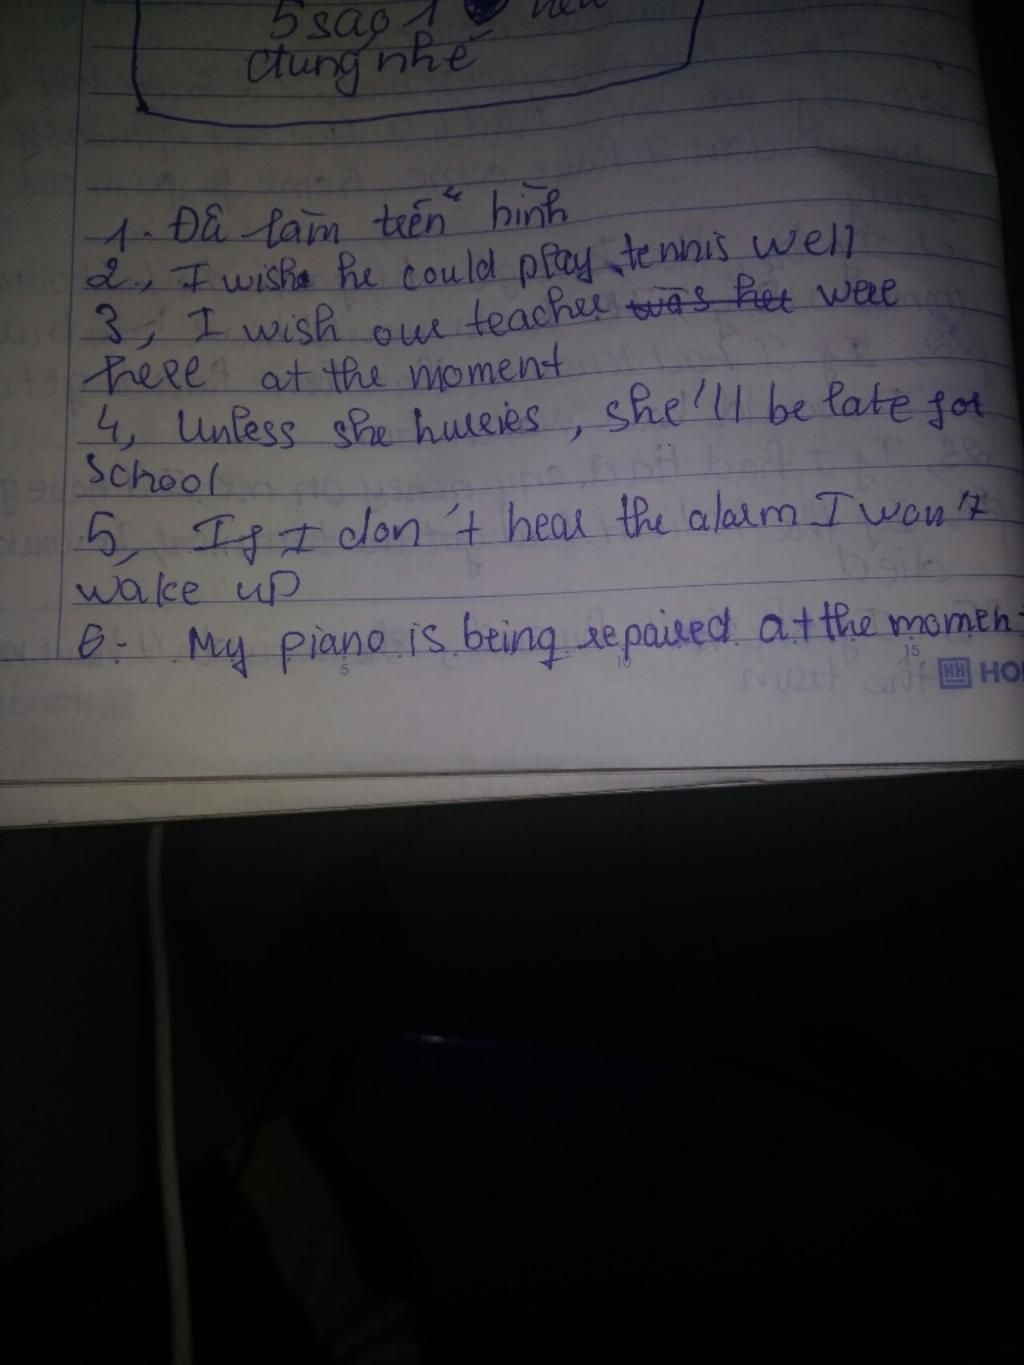 5 sao 1 nếu
đúng nhé
1. Đã làm trên hình
2, I wish he could play tennis well
3, I wish our teacher was her were
here at the moment
4, Unless she hurries, she'll be late for
school
5, If I don't hear the alarm I won't
wake up
6- My piano is being repaired at the moment
5 10 15
HH HO